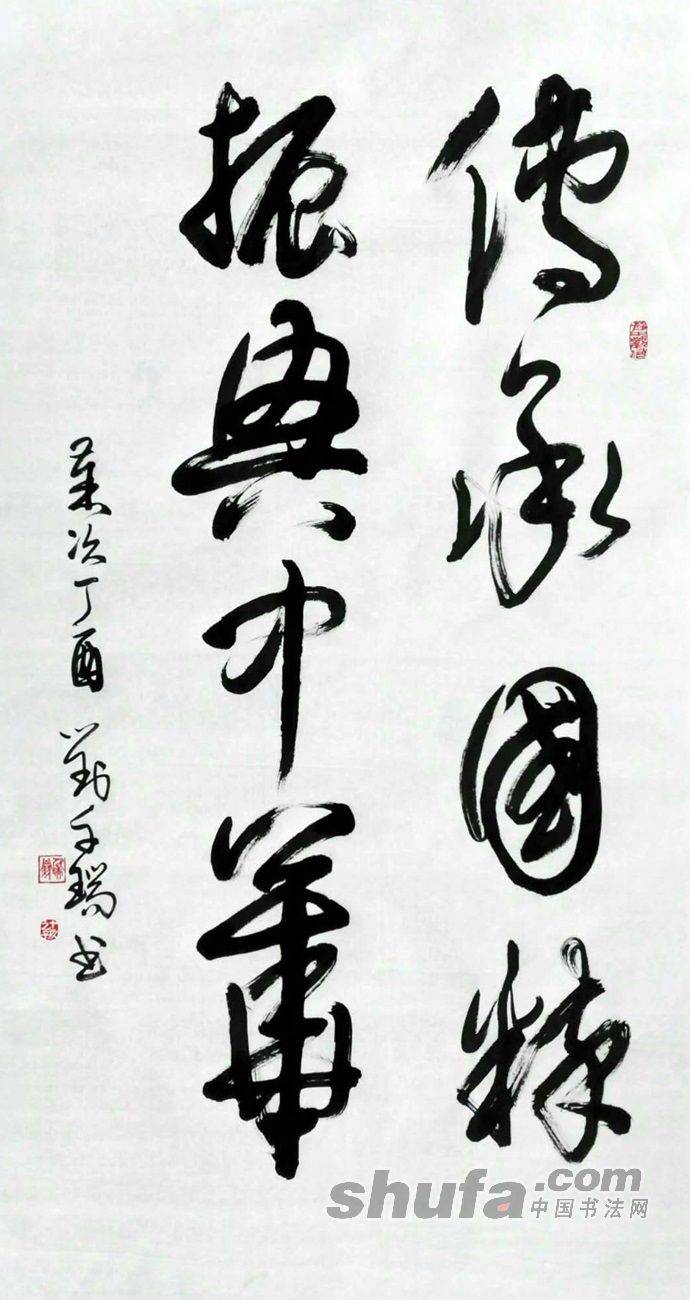 傳承國粹
振興中華
歲次丁酉 千瑞书
shufa.com
中国书法网